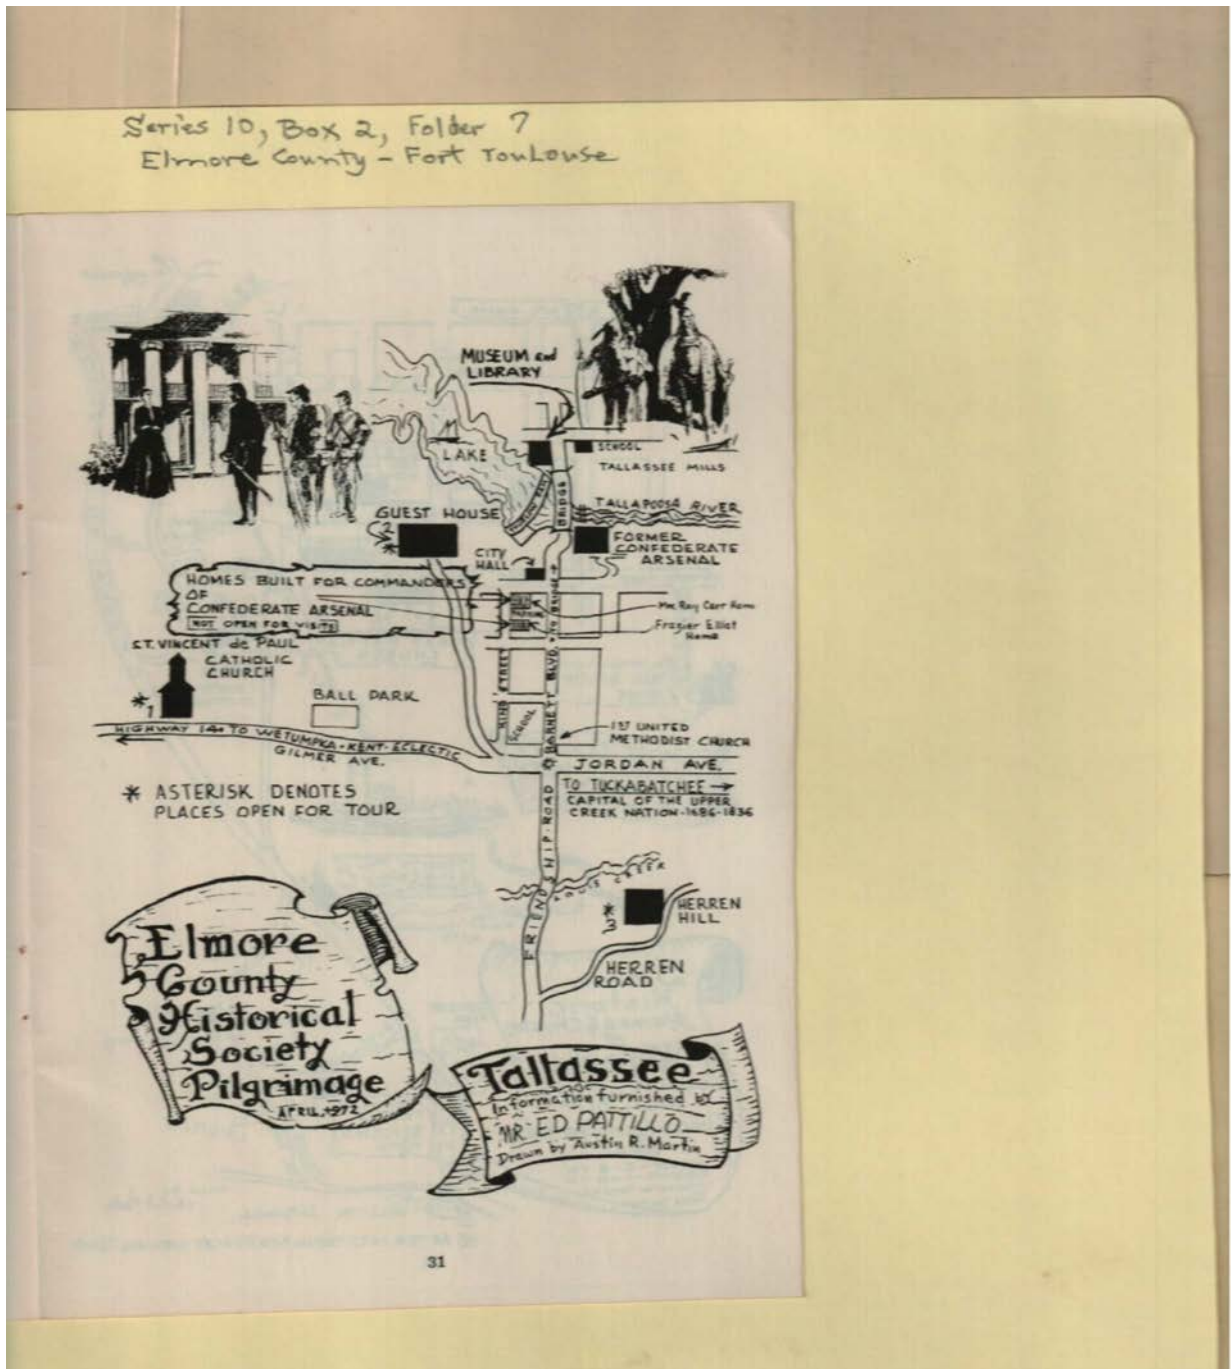 Series 10, Box 2, Folder 7
Elmore County - Fort Toulouse
MUSEUM and
LIBRARY
LAKE
SCHOOL
TALLASSEE MILLS
BRIDGE
TALLAPOOSA RIVER
GUEST HOUSE
2
*
FORMER
CONFEDERATE
ARSENAL
CITY
HALL
HOMES BUILT FOR COMMANDERS
OF
CONFEDERATE ARSENAL
NOT OPEN FOR VISITS
TO BRIDGE →
Mrs. Roy Carr Home
Frazier Elliot
Home
ST. VINCENT de PAUL
CATHOLIC
CHURCH
* 1
BALL PARK
KING STREET
SCHOOL
BARNETT BLVD.
1ST UNITED
METHODIST CHURCH
HIGHWAY 14 TO WETUMPKA - KENT - ECLECTIC
GILMER AVE.
JORDAN AVE.
* ASTERISK DENOTES
PLACES OPEN FOR TOUR
TO TUCKABATCHEE →
CAPITAL OF THE UPPER
CREEK NATION-1686-1836
FRIENDSHIP ROAD
CREEK
* 3
HERREN
HILL
HERREN
ROAD
Elmore
County
Historical
Society
Pilgrimage
APRIL, 1972
Tallassee
Information furnished by
MR. ED PATTILLO
Drawn by Austin R. Martin
31